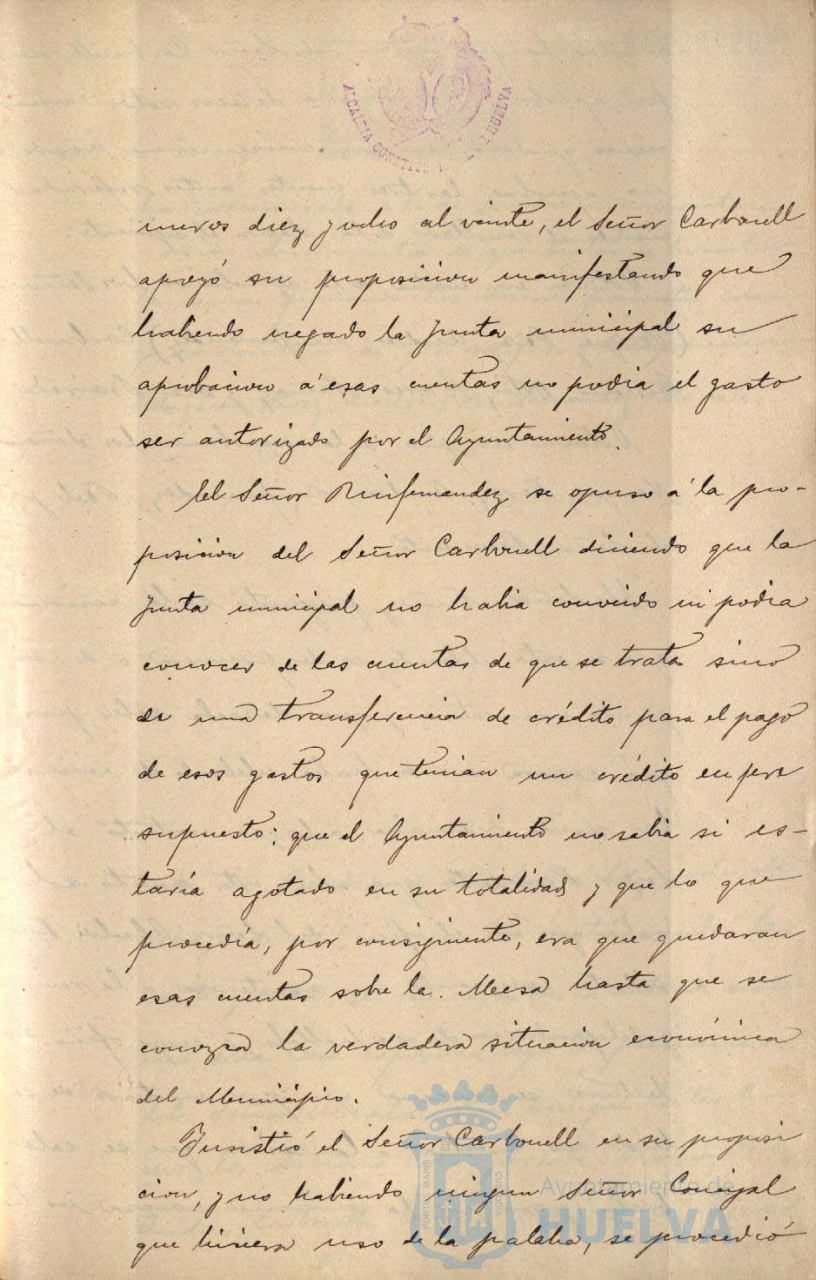 ALCALDIA CONSTITU HUELVA
meros diez y ocho al veinte, el Señor Carbonell
apoyó su proposicion manifestando que
habiendo negado la Junta municipal su
aprobacion á esas cuentas no podia el gasto
ser autorizado por el Ayuntamiento.
El Señor Rinfernandez se opuso á la pro-
posicion del Señor Carbonell diciendo que la
Junta municipal no habia conocido ni podia
conocer de las cuentas de que se trata sino
de una transferencia de crédito para el pago
de esos gastos que tenian un crédito en pre
supuesto: que el Ayuntamiento no sabia si es-
taría agotado en su totalidad y que lo que
procedía, por consiguiente, era que quedaran
esas cuentas sobre la Mesa hasta que se
conozca la verdadera situacion económica
del Municipio.
Insistió el Señor Carbonell en su proposi
cion, y no habiendo ningun Señor Concejal
que hiciera uso de la palabra, se procedió
Ayuntamiento de
HUELVA